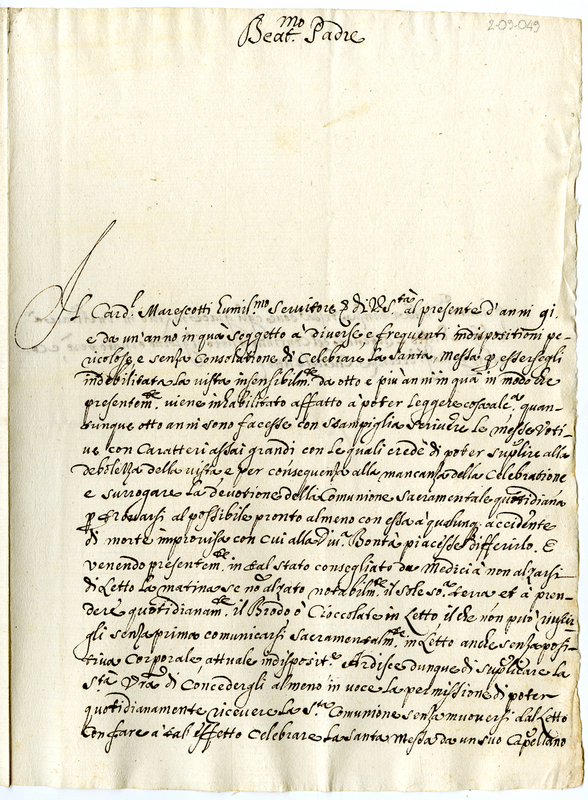 2-09-049
Beat.mo Padre
Il Card.l Marescotti humil.mo Servitore di V. S.tà al presente d'anni 91.
e da un'anno in quà soggetto à diverse e frequenti indispositioni pe-
ricolose e senza Consolatione di Celebrare la Santa Messa p essersegli
indebilitata la vista insensibilm.te da otto e più anni in quà in modo che
presentem.te viene inhabilitato affatto à poter leggere cosa alc.a quan-
tunque otto anni sono facesse con stampiglia scrivere le messe Voti-
ve con Caratteri assai grandi con le quali credè di poter suplire alla
debolezza della vista e per conseguenza alla mancanza della Celebratione
e surrogare la devotione della Comunione Sacramentale quotidiana
p trovarsi al possibile pronto almeno con essa à qualunq. accidente
di morte improvisa con cui alla Div.a Bontà piacesse differirlo. E
venendo presentem.te in tal stato consigliato da Medici à non alzarsi
di Letto la matina se nō alzato notabilm.te il sole so.a terra et à pren-
dere quotidianam.te il Brodo ò Cioccolate in Letto il che nōn può riuscir
gli senza prima comunicarsi Sacramentalm.te in Letto anche senza posi-
tiva Corporale attuale indisposit.e Ardisce dunque di suplicare la
S.tà V.ra di Concedergli almeno in voce la permissione di poter
quotidianamente ricevere la S.ta Comunione senza muoversi dal Letto
con fare à tal' effetto Celebrare la Santa Messa da un suo Capellano